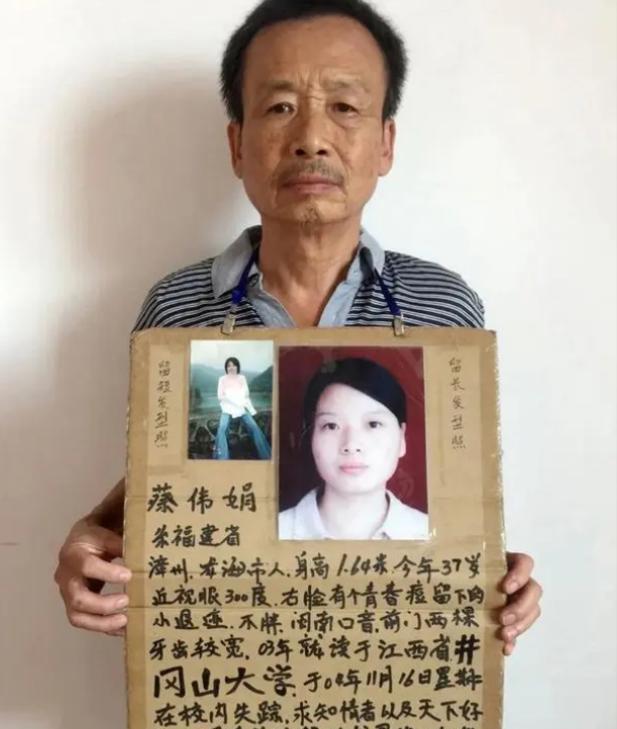 留短发型照
留长发型照
蔡伟娟
系福建省
漳州.龙海市人.身高1.64米.今年37岁
近视眼300度.右脸有个青春痘留下的
小退迹.不胖.闽南口音.前门两棵
牙齿较宽.03年就读于江西省井
冈山大学.于04年11月16日星期
在校内失踪.求知情者以及天下好